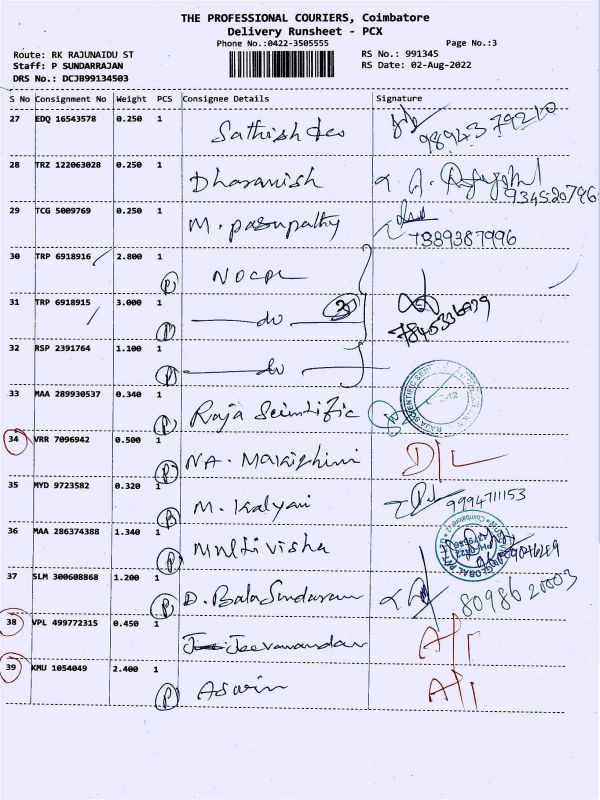 THE PROFESSIONAL COURIERS, Coimbatore
Delivery Runsheet - PCX
Phone No.:0422-3505555
Page No.:3
Route: RK RAJUNAIDU ST
RS No.: 991345
Staff: P SUNDARRAJAN
RS Date: 02-Aug-2022
DRS No.: DCJB99134503
S No Consignment No Weight PCS Consignee Details Signature
27 EDQ 16543578 0.250 1 Sathish deo 9894379210
28 TRZ 122063028 0.250 1 Dharanish 934520796
29 TCG 5009769 0.250 1 M. pasupathy 7889387996
30 TRP 6918916 2.800 1 P NOCPL
31 TRP 6918915 3.000 1 P do 3
32 RSP 2391764 1.100 1 P do
33 MAA 289930537 0.340 1 P Raja Scientific
34 VRR 7096942 0.500 1 P D/L
35 MYD 9723582 0.320 1 P M. Kalyani 9994711153
36 MAA 286374388 1.340 1 P Multivisha
37 SLM 300608868 1.200 1 P D. BalaSundaram 8098620003
38 VPL 499772315 0.450 1 Jeevanandan
39 KMU 1054049 2.400 1 P Aswin